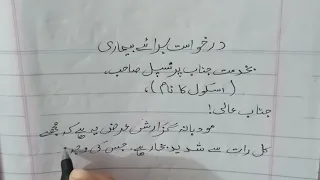 درخواست برائے بیماری
بخدمت جناب پرنسپل صاحب،
(اسکول کا نام)،
جناب عالی!
مودبانہ گزارش عرض یہ ہے کہ مجھے
کل رات سے شدید بخار ہے۔ جس کی وجہ